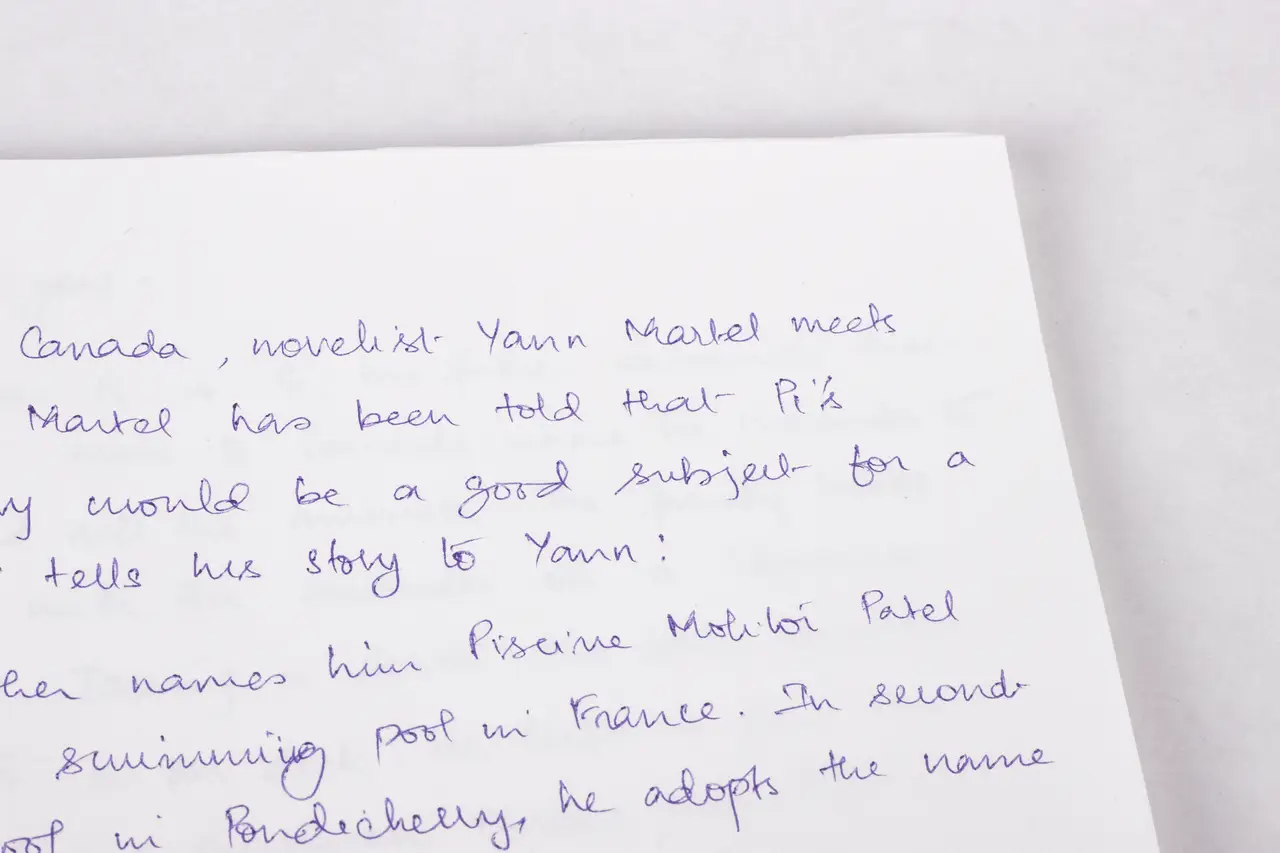 Canada, novelist Yann Martel meets
Martel has been told that Pi's
would be a good subject for a
tells his story to Yann:
names him Piscine Molitor Patel
swimming pool in France. In second-
in Pondicherry, he adopts the name